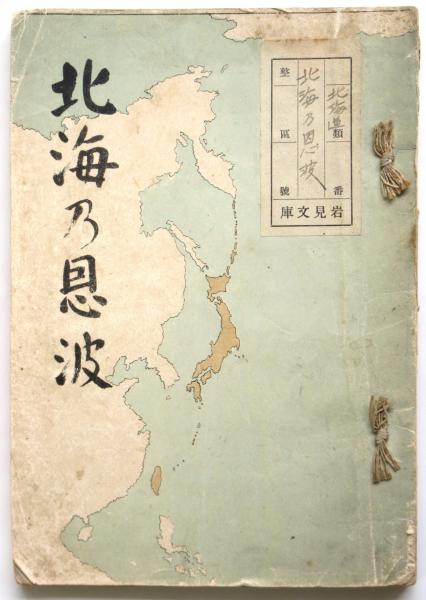 北海乃恩波
北海道類
番
北海乃恩波
整
區
號
岩見文庫